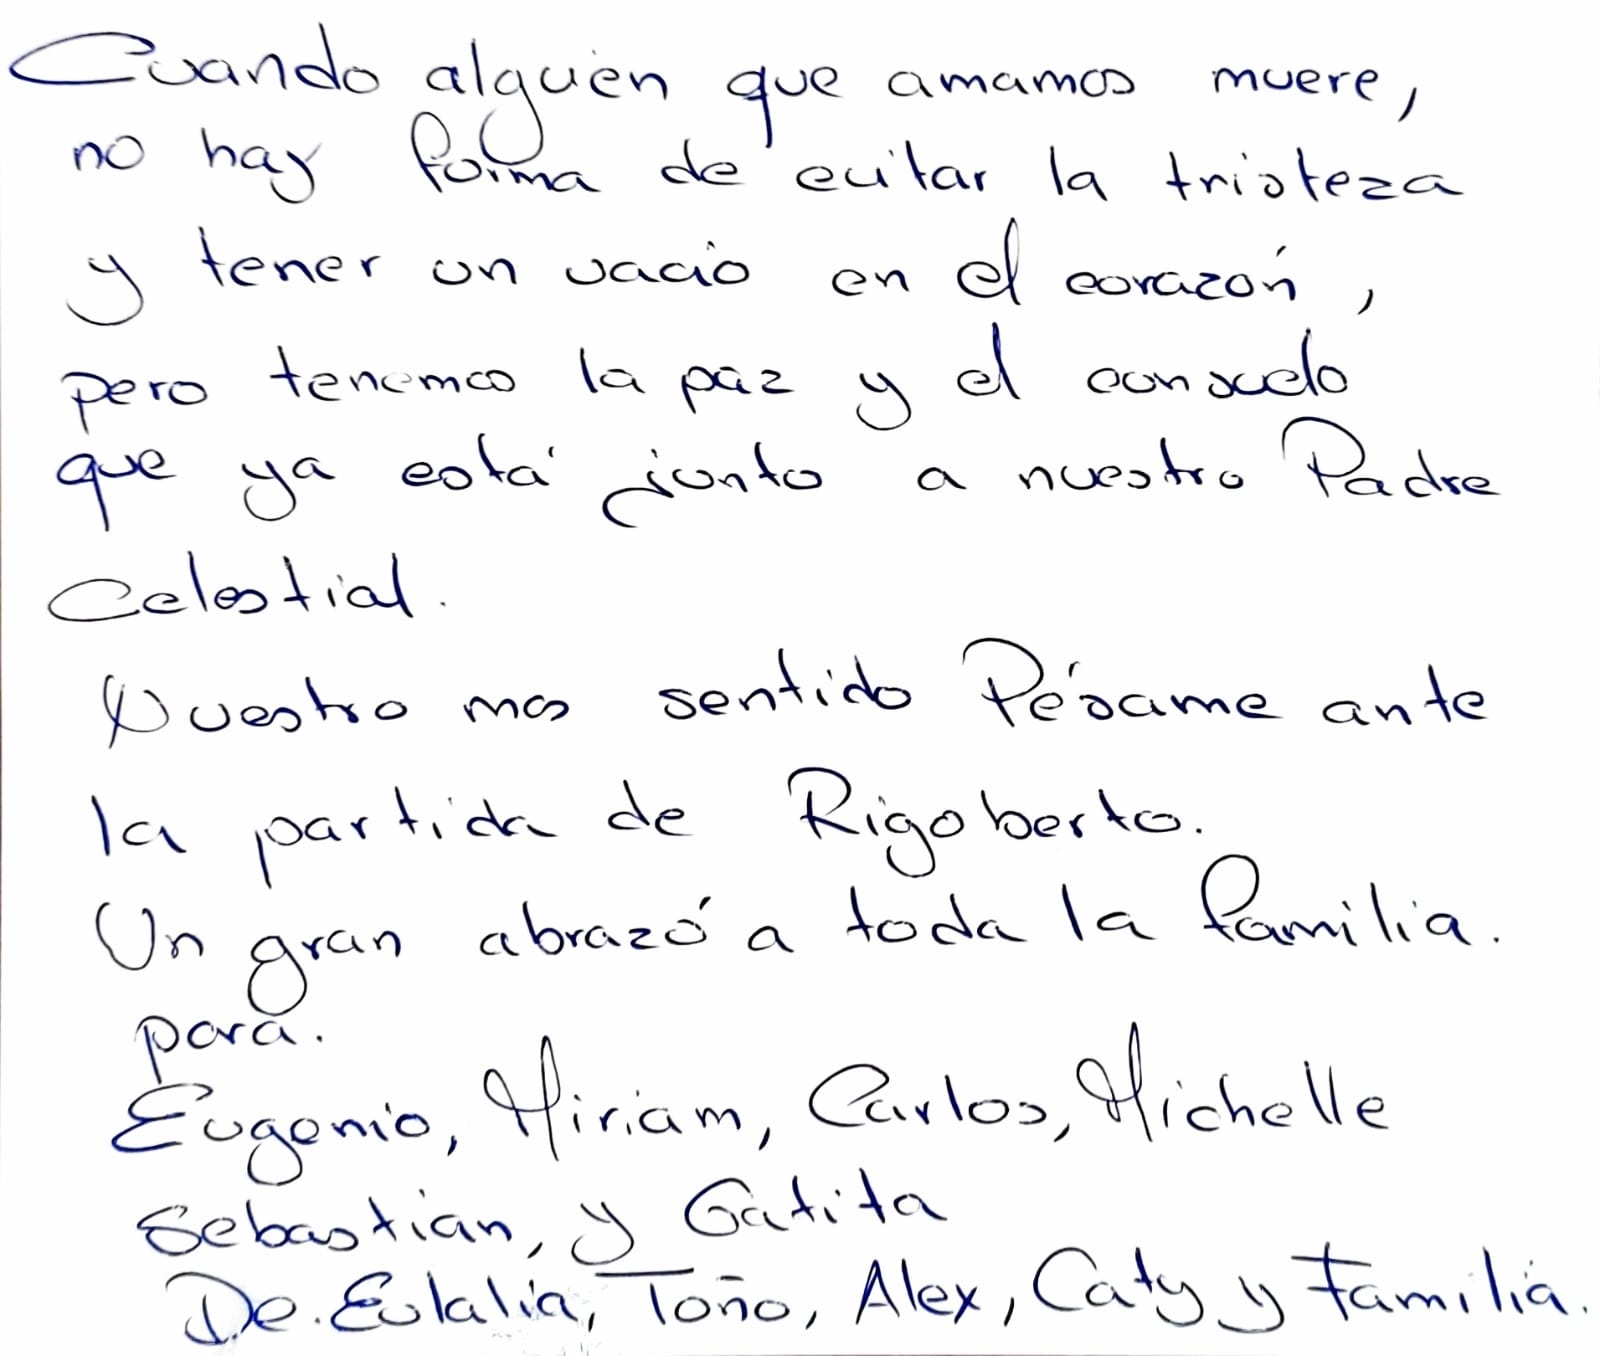 Cuando alguien que amamos muere,
no hay forma de evitar la tristeza
y tener un vacio en el corazón,
pero tenemos la paz y el consuelo
que ya está junto a nuestro Padre
Celestial.
Nuestro mas sentido Pésame ante
la partida de Rigoberto.
Un gran abrazó a toda la familia.
para.
Eugenio, Miriam, Carlos, Michelle
Sebastian, y Gatita
De. Eulalia, Toño, Alex, Caty y Familia.